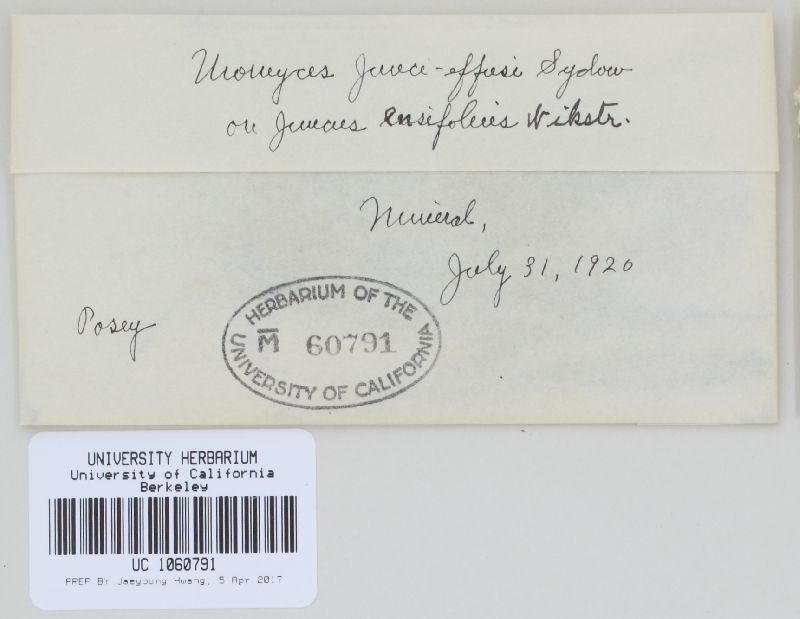 Uromyces Junci-effusi Sydow
on Juncus ensifolius Wikstr.
Mineral,
July 31, 1920
Posey
HERBARIUM OF THE
M 60791
UNIVERSITY OF CALIFORNIA
UNIVERSITY HERBARIUM
University of California
Berkeley
UC 1060791
PREP BY Jaeyoung Hwang, 5 Apr 2017